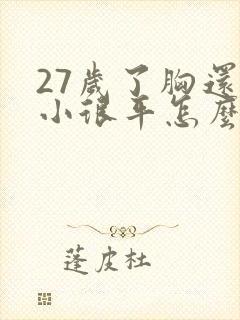 27歲了胸還
小很平怎麼
蓬皮杜